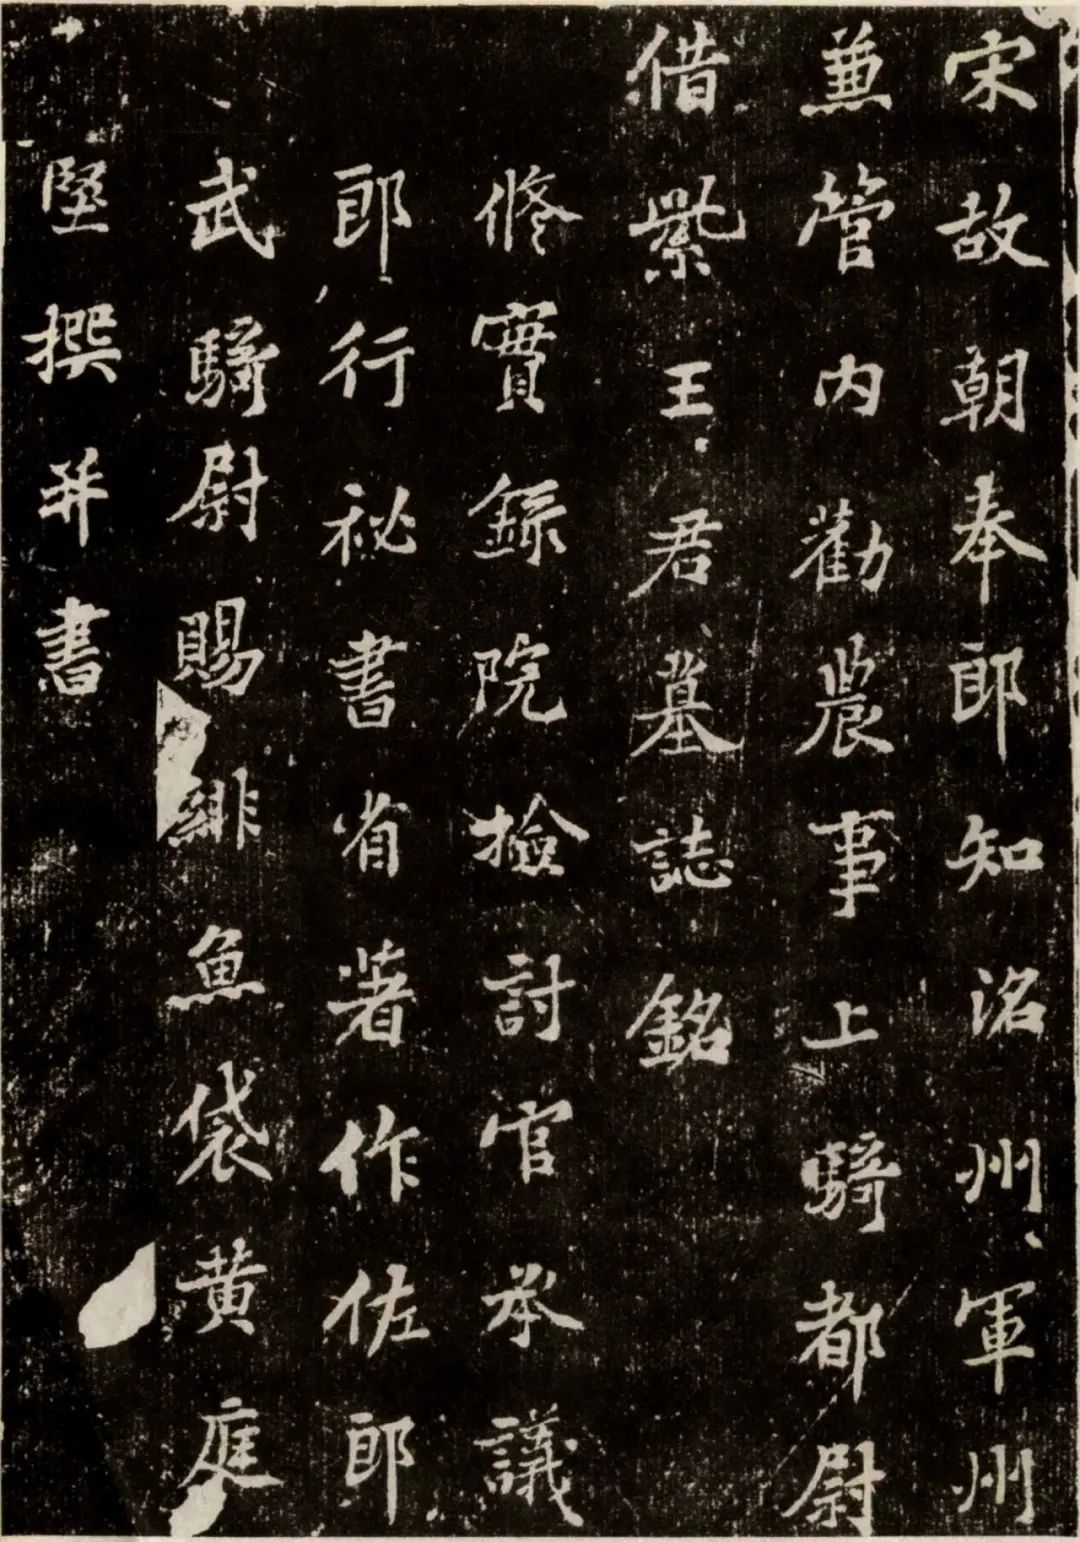 宋故朝奉郎知洺州軍州
兼管內勸農事上騎都尉
借紫王君墓誌銘
脩實錄院檢討官承議
郎行祕書省著作佐郎
武騎尉賜緋魚袋黃庭
堅撰并書